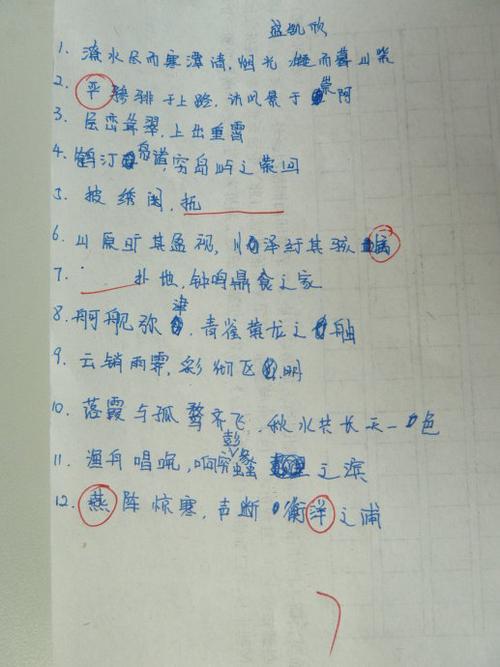 盛凯欣
1. 潦水尽而寒潭清，烟光凝而暮山紫
2. 平骖騑于上路，访风景于崇阿
3. 层峦耸翠，上出重霄
4. 鹤汀凫渚，穷岛屿之萦回
5. 披绣闼，抚
6. 川原旷其盈视，川泽纡其骇瞩
7. 扑地，钟鸣鼎食之家
8. 舸舰弥津，青雀黄龙之舳
9. 云销雨霁，彩彻区明
10. 落霞与孤鹜齐飞，秋水共长天一色
11. 渔舟唱晚，响穷彭蠡之滨
12. 燕阵惊寒，声断衡洋之浦
7